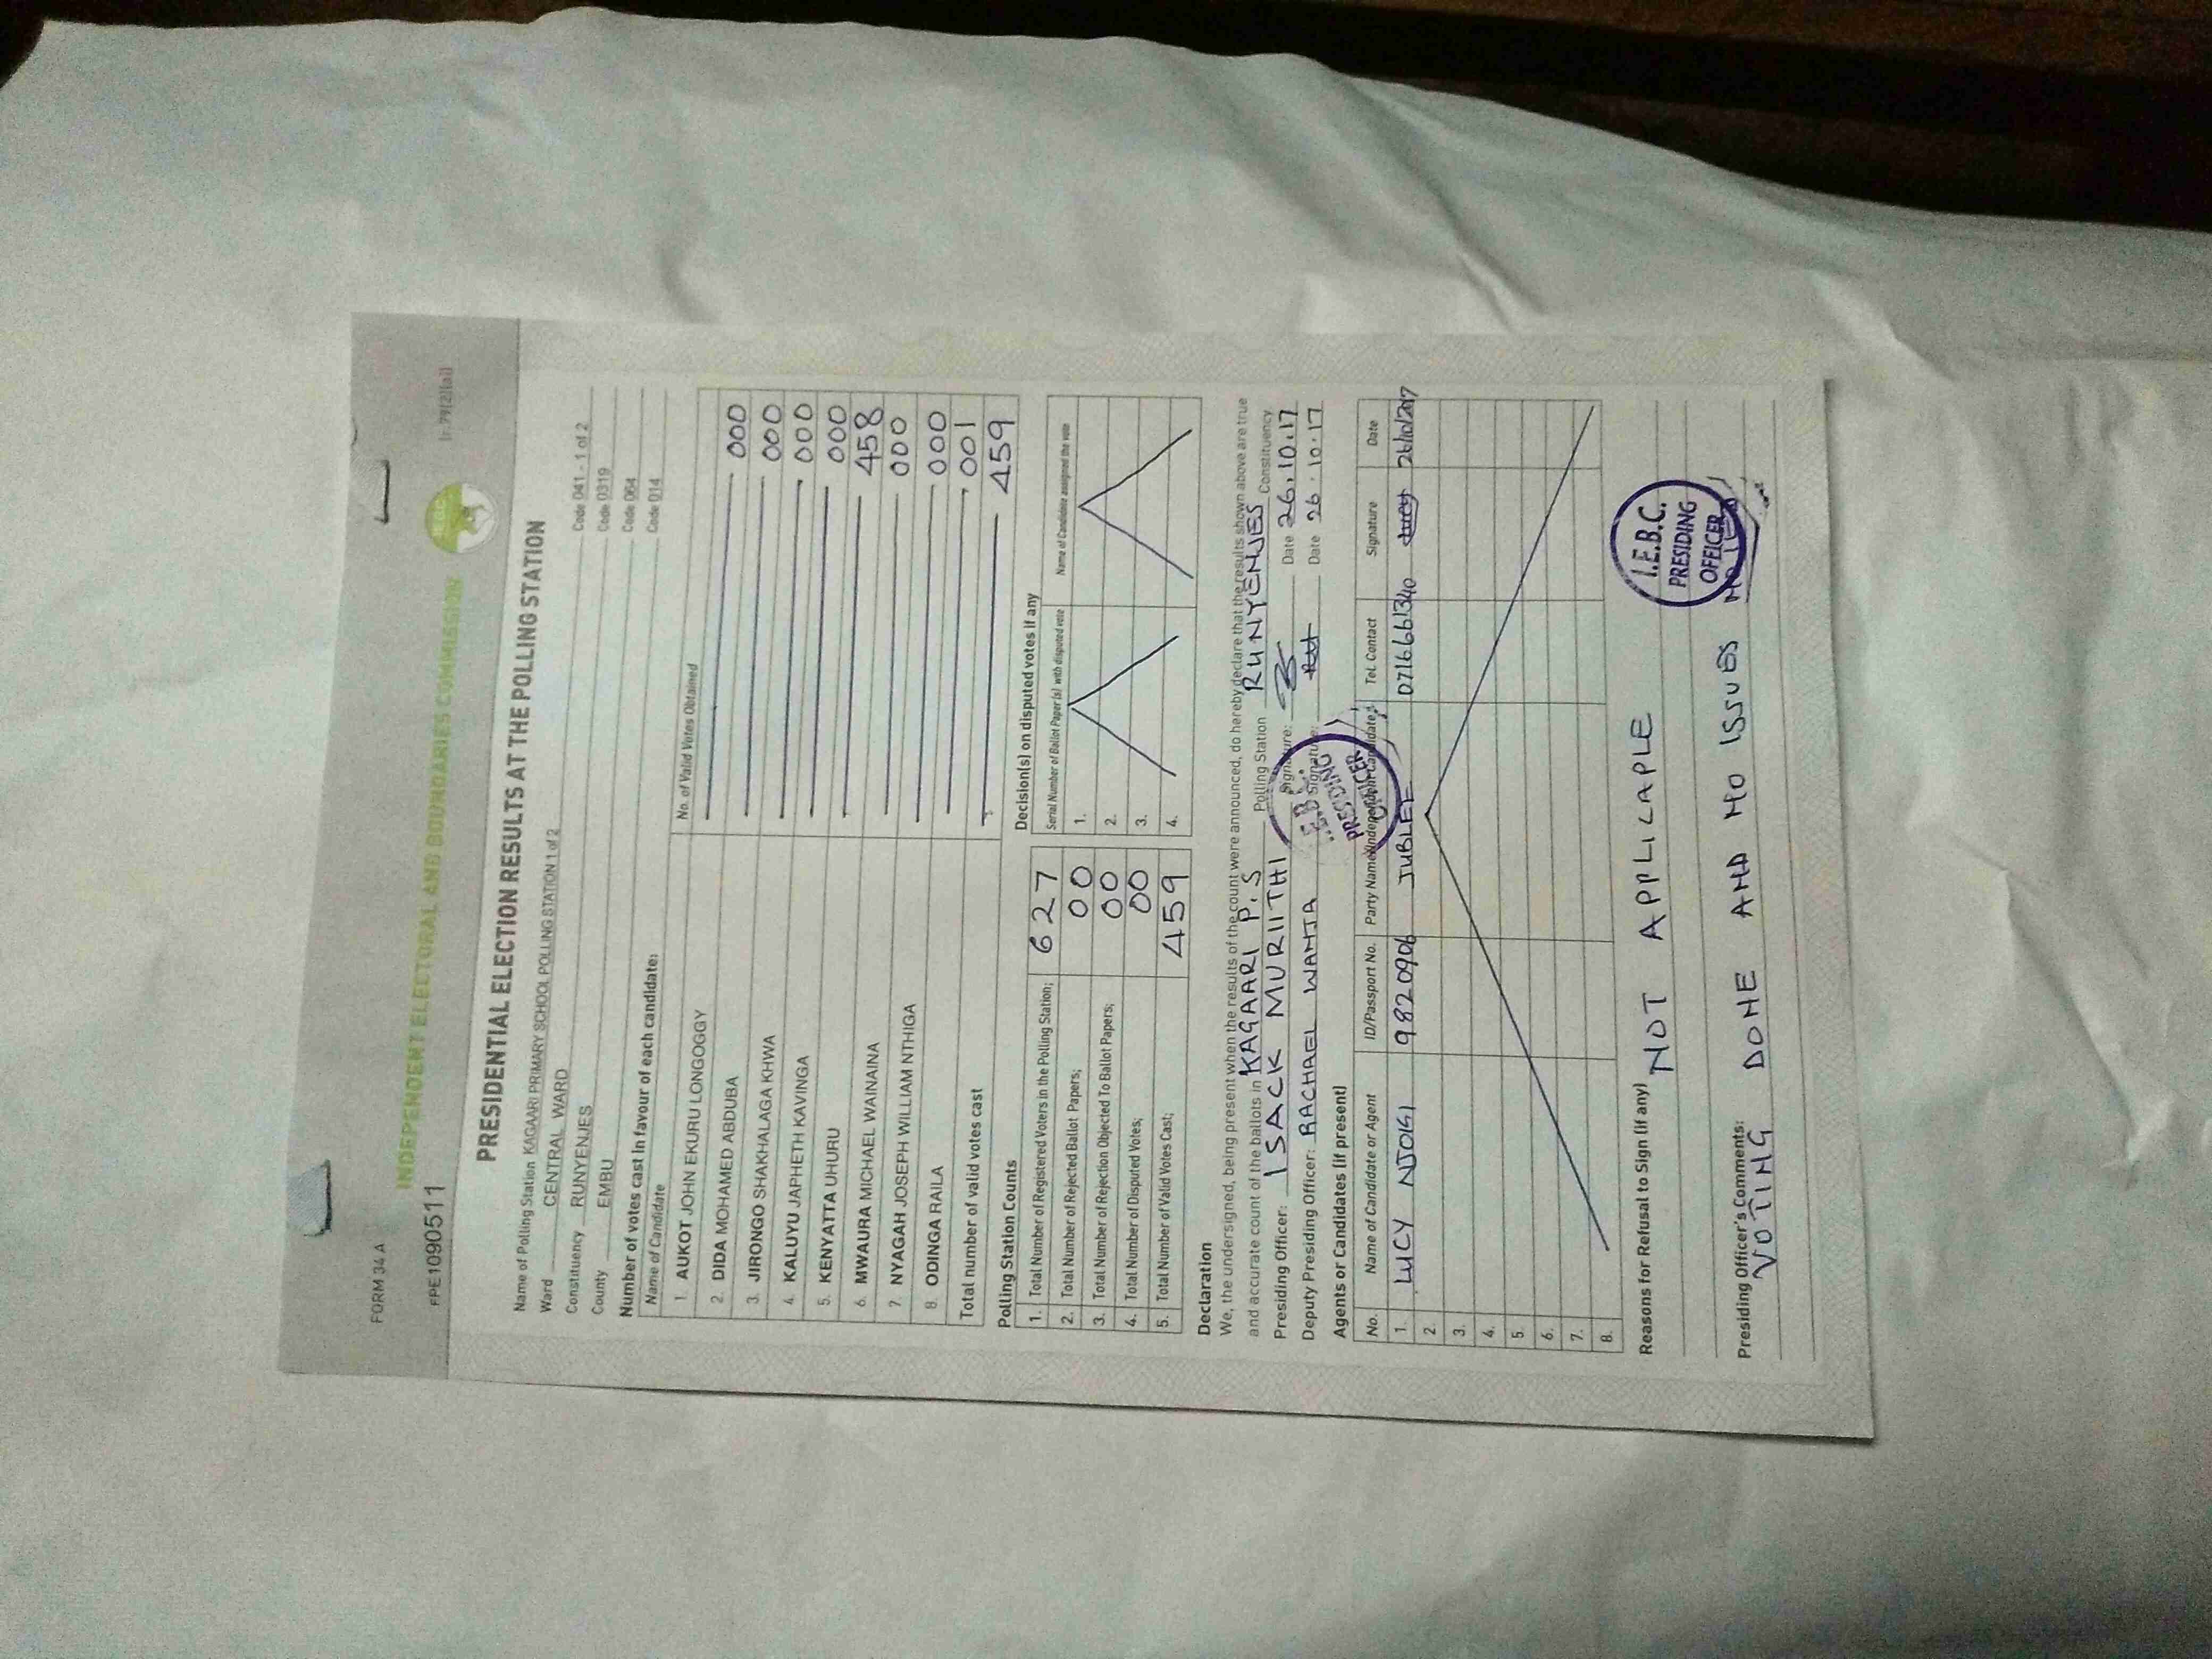 FORM 34 A
r.79(2)(a)
INDEPENDENT ELECTORAL AND BOUNDARIES COMMISSION
FPE1090511
PRESIDENTIAL ELECTION RESULTS AT THE POLLING STATION
Name of Polling Station KAGAARI PRIMARY SCHOOL POLLING STATION 1 of 2 Code 041 - 1 of 2
Ward CENTRAL WARD Code 0319
Constituency RUNYENJES Code 064
County EMBU Code 014
Number of votes cast in favour of each candidate:
Name of Candidate No. of Valid Votes Obtained
1. AUKOT JOHN EKURU LONGOGGY 000
2. DIDA MOHAMED ABDUBA 000
3. JIRONGO SHAKHALAGA KHWA 000
4. KALUYU JAPHETH KAVINGA 000
5. KENYATTA UHURU 458
6. MWAURA MICHAEL WAINAINA 000
7. NYAGAH JOSEPH WILLIAM NTHIGA 000
8. ODINGA RAILA 001
Total number of valid votes cast 459
Polling Station Counts
1. Total Number of Registered Voters in the Polling Station; 627
2. Total Number of Rejected Ballot Papers; 00
3. Total Number of Rejection Objected To Ballot Papers; 00
4. Total Number of Disputed Votes; 00
5. Total Number of Valid Votes Cast; 459
Decision(s) on disputed votes if any
Serial Number of Ballot Paper (s) with disputed vote Name of Candidate assigned the vote
1.
2.
3.
4.
Declaration
We, the undersigned, being present when the results of the count were announced, do hereby declare that the results shown above are true
and accurate count of the ballots in KAGAARI P.S Polling Station RUNYENJES Constituency
Presiding Officer: ISACK MURIITHI Signature: Date 26.10.17
Deputy Presiding Officer: RACHAEL WANJA Signature: Date 26.10.17
I.E.B.C. PRESIDING OFFICER
Agents or Candidates (if present)
No. Name of Candidate or Agent ID/Passport No. Party Name/Independent Candidate Tel. Contact Signature Date
1. LUCY NJOGI 9820906 JUBLEE 0716661340 Lucy 26/10/2017
2.
3.
4.
5.
6.
7.
8.
Reasons for Refusal to Sign (if any)
NOT APPLICAPLE
I.E.B.C.
PRESIDING
OFFICER
Presiding Officer's Comments:
VOTING DONE AND NO ISSUES